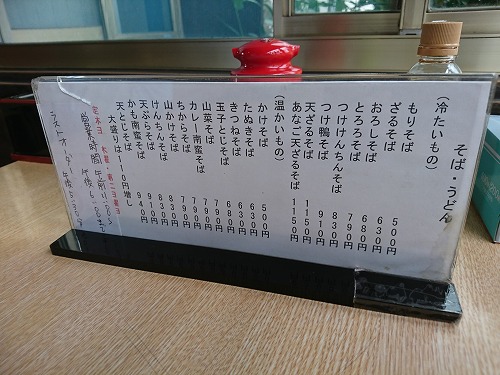 そば・うどん
(冷たいもの)
もりそば 500円
ざるそば 630円
おろしそば 680円
とろろそば 790円
つけけんちんそば 830円
つけ鴨そば 910円
天ざるそば 1150円
あなご天ざるそば 1150円
(温かいもの)
かけそば 500円
たぬきそば 630円
きつねそば 630円
玉子とじそば 680円
山菜そば 790円
カレー南蛮そば 790円
ちからそば 790円
山かけそば 790円
けんちんそば 830円
天ぷらそば 910円
かも南蛮そば 910円
天とじそば 940円
大盛りは110円増し
定休日
営業時間 午前11:00 午後6:00まで
ラストオーダー午後5:30